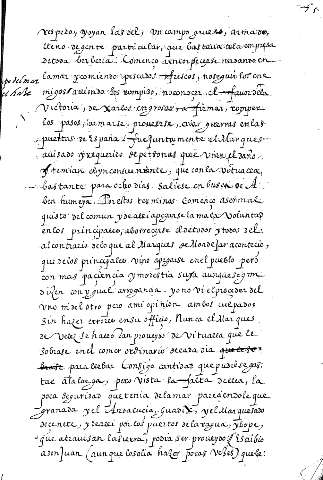 respeto, y oyan las del, un campo grueso, armado,
lleno de gente particular, que bastava a la empresa
de toda berberia. Començo a reneçerse nadando en
la mar y comiendo pescados frescos, no seguir los ene
migos aviendo los rompido, no conoçer el favor de la
victoria, dexarlos engrosar afirmar, romper
los pasos, armarse, proveerse, guerras en las
puertas de España fue juntamente el Marques
avisado y requerido de personas que vian el daño
y temian el ynconviniente, que con la vitualla
bastante para ocho dias saliese en busca de A
ben humeya. Por estos terminos començo a ser mal
quisto del comun y de ai a pegarse la mala voluntad
en los principales, aborrecerse el de todos y todos del
al contrario de lo que al Marques de Mondejar aconteçio,
que de los principales vino a pegarse en el pueblo pero
con mas paçiencia y modestia suya aunque segun
dizen con ygual arrogancia. yo no vi el proceder del
uno ni del otro pero a mi opinion ambos culpados
sin hazer errores en su offiçio. Nunca el Marques
de Velez se hallo tan proveydo de vitualla que le
sobrase en el comer ordinario de cada dia
para llevar consigo cantidad que pudiese gas
tar a la larga, pero vista la falta della, la
poca seguridad que tenia de la mar pareçiendole que
granada y el Andaluzia, Guadix, y el Marquesado
de cenete, y de alli por los puertos de la ragua, y
que atraviesan la sierra, podia ser proveydo escribio
a don Juan (aunque lo solia hazer pocas vezes) que le